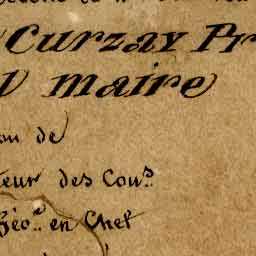 Curzay Pr
maire
on de
teur des Cons.
Géo.e en Chef